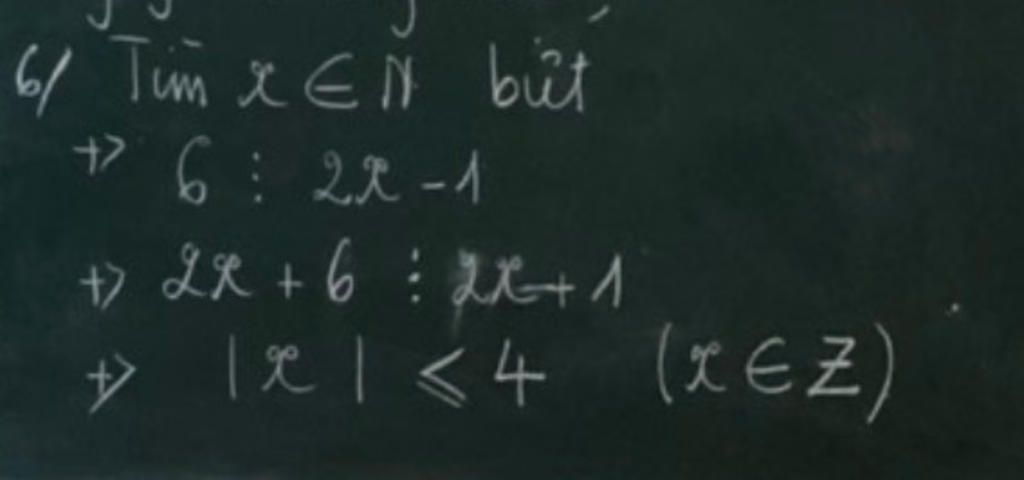 6/ Tìm x ∈ N biết
+> 6 ⋮ 2x - 1
+> 2x + 6 ⋮ 2x + 1
+> |x| ⩽ 4 (x ∈ Z)